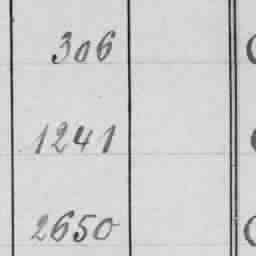 306
1241
2650